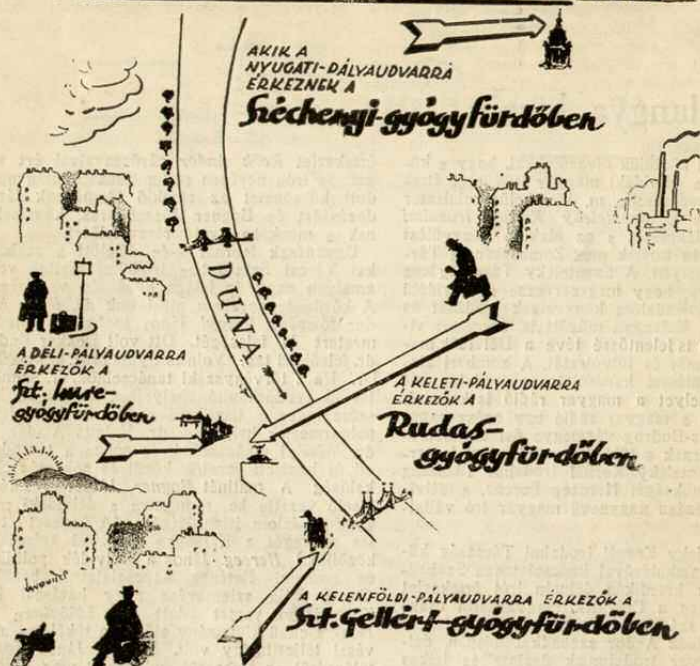 AKIK A
NYUGATI-PÁLYAUDVARRA
ÉRKEZNEK A
Széchenyi-gyógyfürdőben
DUNA
A DÉLI-PÁLYAUDVARRA
ÉRKEZŐK A
Szt. Imre-
gyógyfürdőben
A KELETI-PÁLYAUDVARRA
ÉRKEZŐK A
Rudas-
gyógyfürdőben
A KELENFÖLDI-PÁLYAUDVARRA ÉRKEZŐK A
Szt. Gellért-gyógyfürdőben